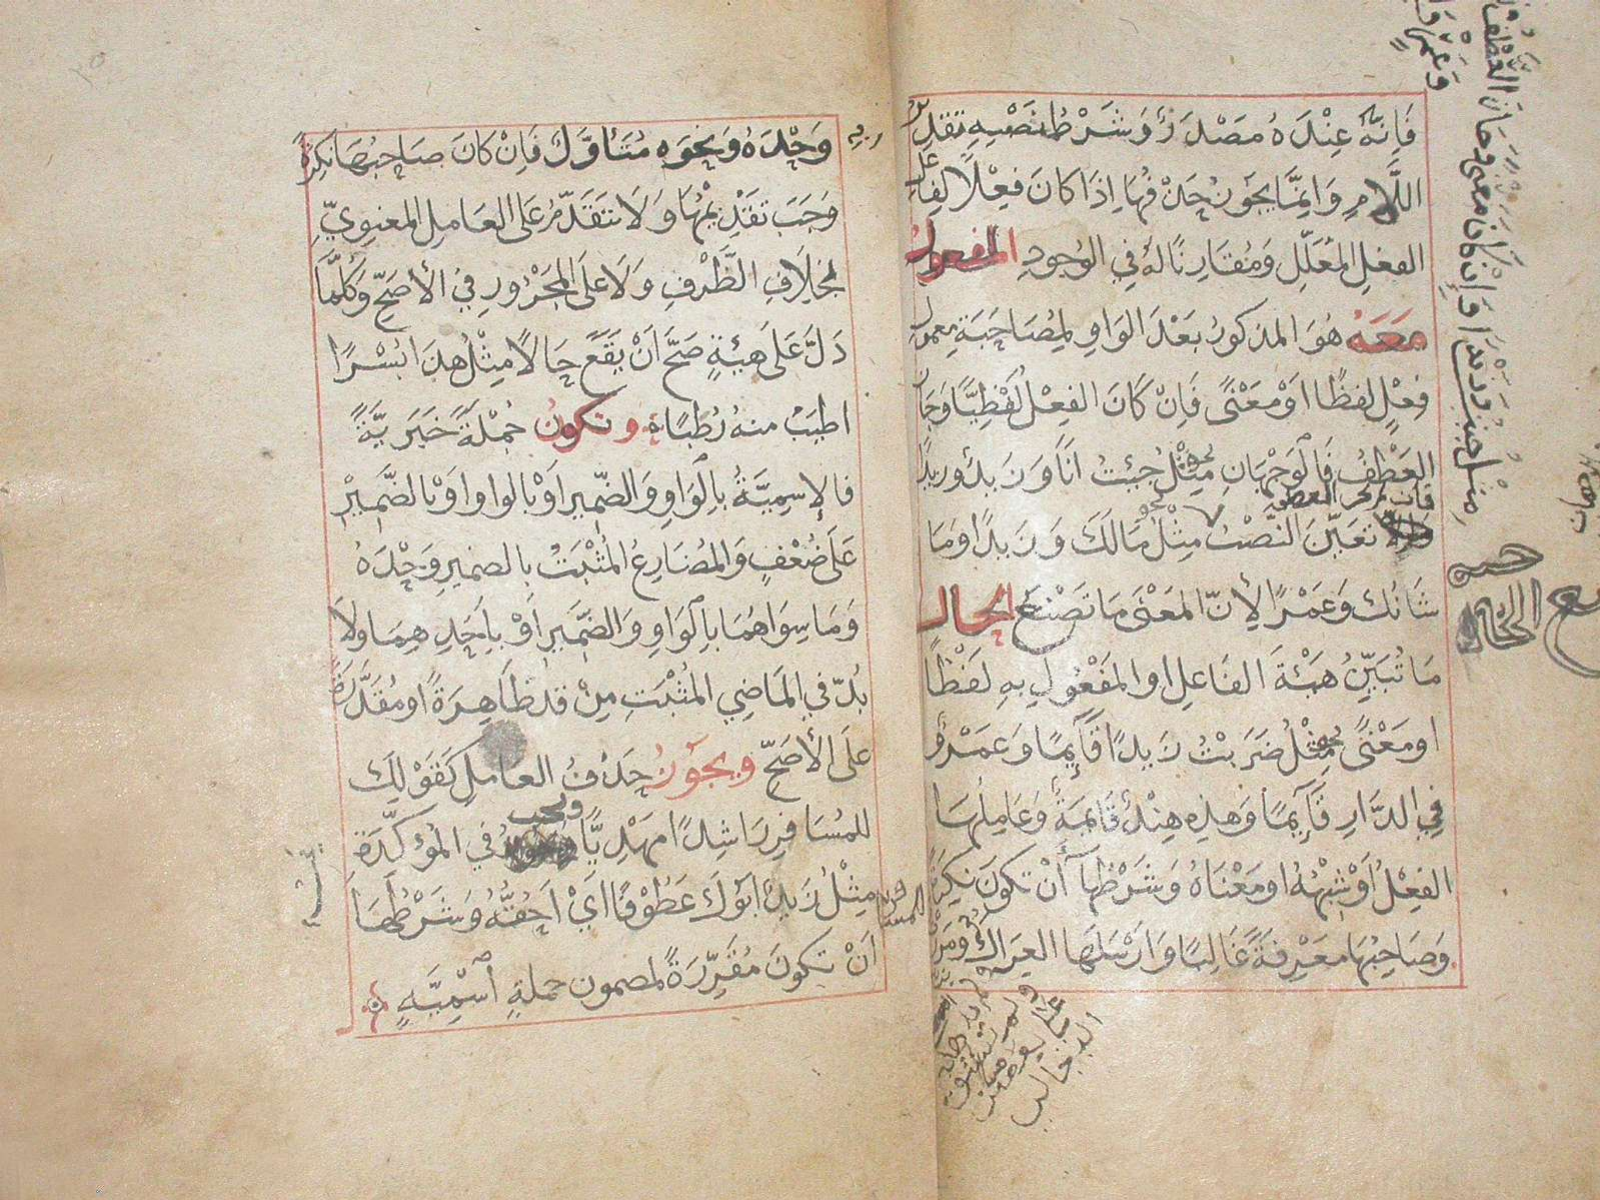 فَاِنَّهُ عِنْدَهُ مَصْدَرٌ وَشَرْطُ نَصْبِهِ تَقْدِيرُ
اللَّامِ وَاِنَّمَا يَجُوزُ حَذْفُهَا اِذَا كَانَ فِعْلًا لِفَاعِلِ
الفِعْلِ المُعَلَّلِ وَمُقَارِنًا لَهُ فِي الوُجُودِ المفعول
مَعَهُ هُوَ المذكورُ بَعْدَ الوَاوِ لِمُصَاحَبَةِ معمولِ
فِعْلٍ لفظًا اوْ مَعْنًى فَاِنْ كَانَ الفِعْلُ لَفْظِيًّا وَجَازَ
العَطْفُ فَالْوَجْهَانِ نحو مِثْلُ جِئتُ اَنَا وَزَيدٌ وزيدًا
فان لم يجز العطف
تَعَيَّنَ النَّصْبُ مِثْلُ نحو مَا لَكَ وَزَيدًا وَمَا
شَانُكَ وَعَمْرًا لِاَنّ المَعْنَى مَا تَصْنَعُ الحال
مَا تُبَيِّنُ هَيْئَةَ الفَاعِلِ او المَفْعُولِ بِهِ لَفْظًا
او مَعْنًى نحو مِثْلُ ضَرَبْتُ زَيدًا قَايِمًا وَعَمْرٌو
فِي الدَّارِ قَايِمًا وَهٰذِهِ هِنْدٌ قَايِمَةً وَعَامِلُهَا
الفِعْلُ اَوْ شِبْهُهُ او مَعْنَاهُ وَشَرْطُهَا اَنْ تكونَ نَكِرَةً
وَصَاحِبُهَا مَعْرِفَةً غَالِبًا وَارْسَلَهَا العِرَاكَ وَمَرَرْتُ
وَحْدَهُ وَنَحْوَهِ مُتَاَوَّلٌ فَاِنْ كَانَ صَاحِبُهَا نَكِرَةً
وَجَبَ تَقْدِيْمُهَا وَلَا تَتَقَدَّمُ عَلَى العَامِلِ المعنوِيِّ
بخِلَافِ الظَّرْفِ وَلَا عَلَى المَجْرُورِ فِي الأَصَحِّ وَكُلَّمَا
دَلَّ عَلَى هيئةٍ صَحَّ اَنْ يَقَعَ حَالًا مِثْلُ هٰذَا بُسْرًا
اطيَبُ منهُ رُطَبًا وتكونُ جُمْلَةً خَبَرِيَّةً
فَالاِسميَّةُ بِالْوَاوِ وَالضَّمِيرِ اَوْ بالواوِ اوْ بالضَّمِيرِ
عَلَى ضُعْفٍ وَالمُضَارِعُ المُثْبَتُ بالضميرِ وَحْدَهُ
وَمَا سِوَاهُمَا بِالْوَاوِ وَالضَّمِيرِ اَوْ بِاَحَدِهِمَا ولَا
بُدّ فِي المَاضِي المُثْبَتِ مِنْ قد ظَاهِرَةً او مُقَدَّرَةً
عَلَى الأَصَحِّ ويجوزُ حَذْفُ العاملِ كَقَوْلِكَ
للمُسَافِرِ رَاشِدًا مَهْدِيًّا ويجب فِي المُؤكِّدَةِ
مِثْلُ زَيدٌ اَبُوْكَ عَطُوْفًا اَيْ اَحُقُّهُ وَشَرْطُهَا
اَنْ تكونَ مُقَرِّرَةً لمضمون جملةٍ اسْمِيَّةٍ